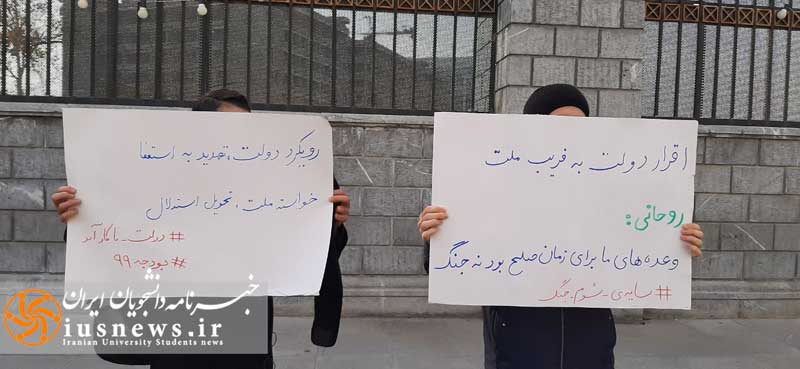 اقرار دولت به فریب ملت
روحانی:
وعده‌های ما برای زمان صلح بود نه جنگ
#سایه‌ی_شوم_جنگ
رویکرد دولت، تهدید به استعفا
خواسته ملت، تحویل استدلال
#دولت_ناکارآمد
#بودجه ۹۹
خبرنامه دانشجویان ایران
iusnews.ir
Iranian University Students news